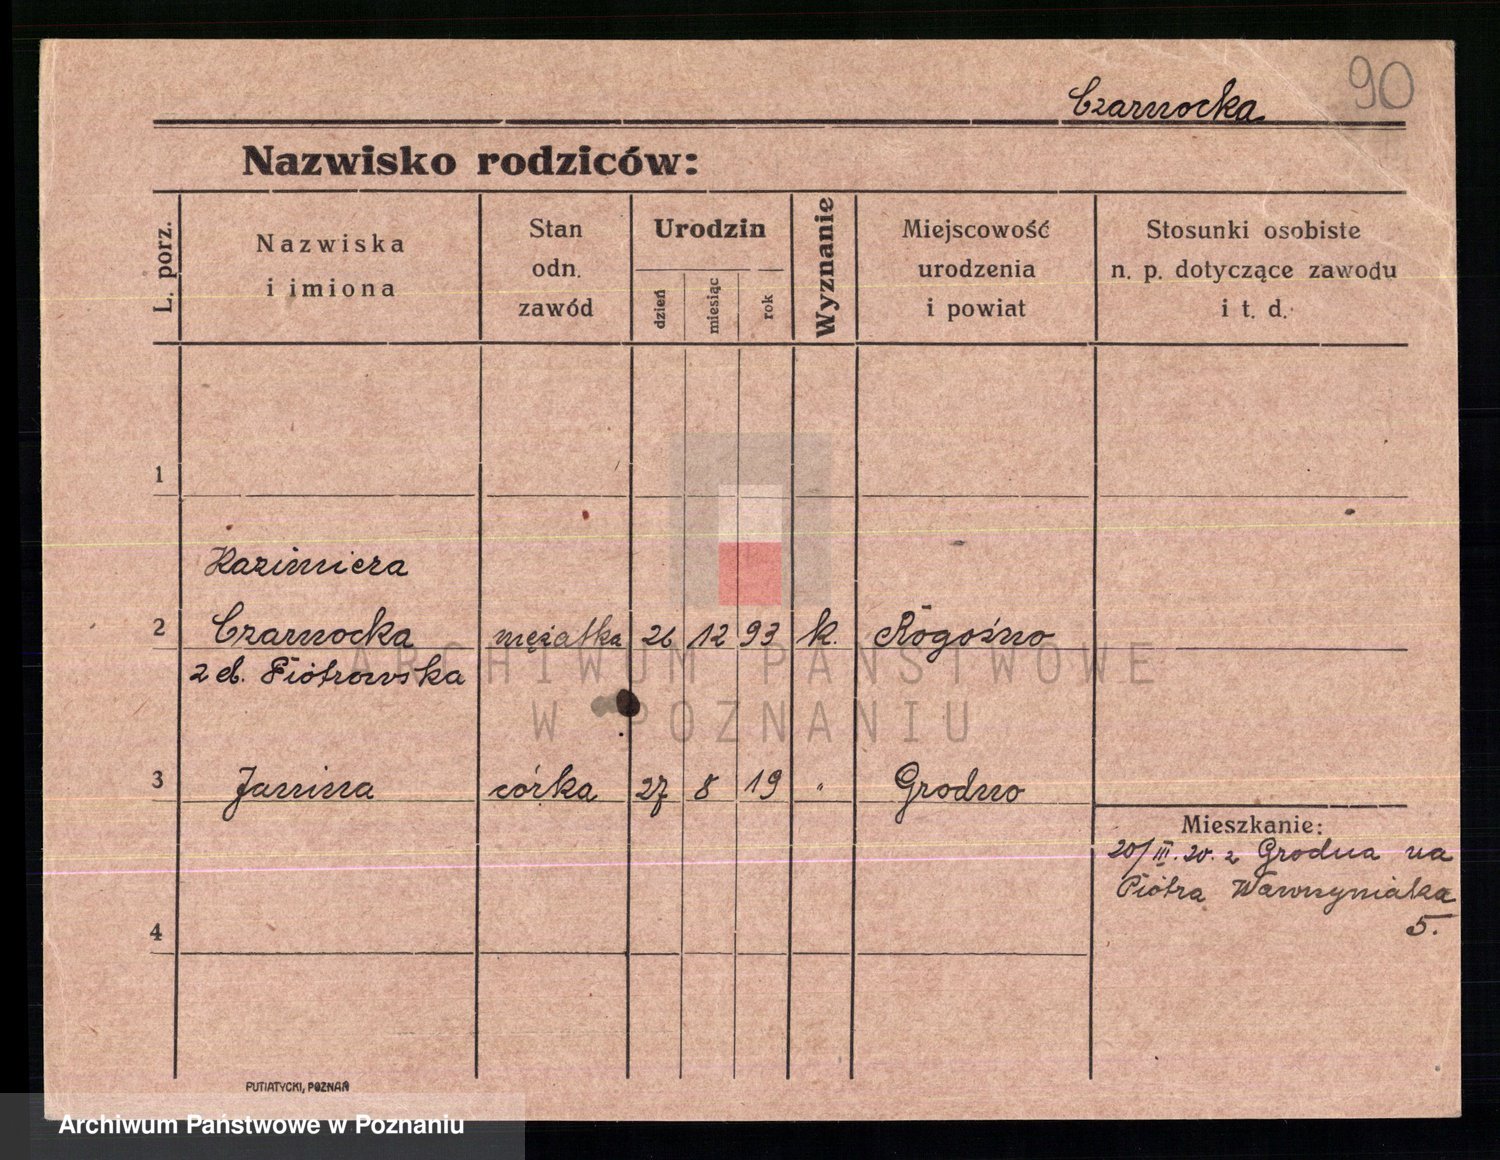 90
Czarnocka
Nazwisko rodziców:
L. porz.
Nazwiska
i imiona
Stan
odn.
zawód
Urodzin
dzień
miesiąc
rok
Wyznanie
Miejscowość
urodzenia
i powiat
Stosunki osobiste
n. p. dotyczące zawodu
i t. d.
1
Kazimiera
2 Czarnocka mężatka 26 12 93 k. Rogoźno
z d. Piotrowska
3 Janina córka 27 8 19 " Grodno
Mieszkanie:
20/III. 20. z Grodna na
Piotra Wawrzyniaka
5.
4
PUTIATYCKI, POZNAŃ
ARCHIWUM PAŃSTWOWE
W POZNANIU
Archiwum Państwowe w Poznaniu